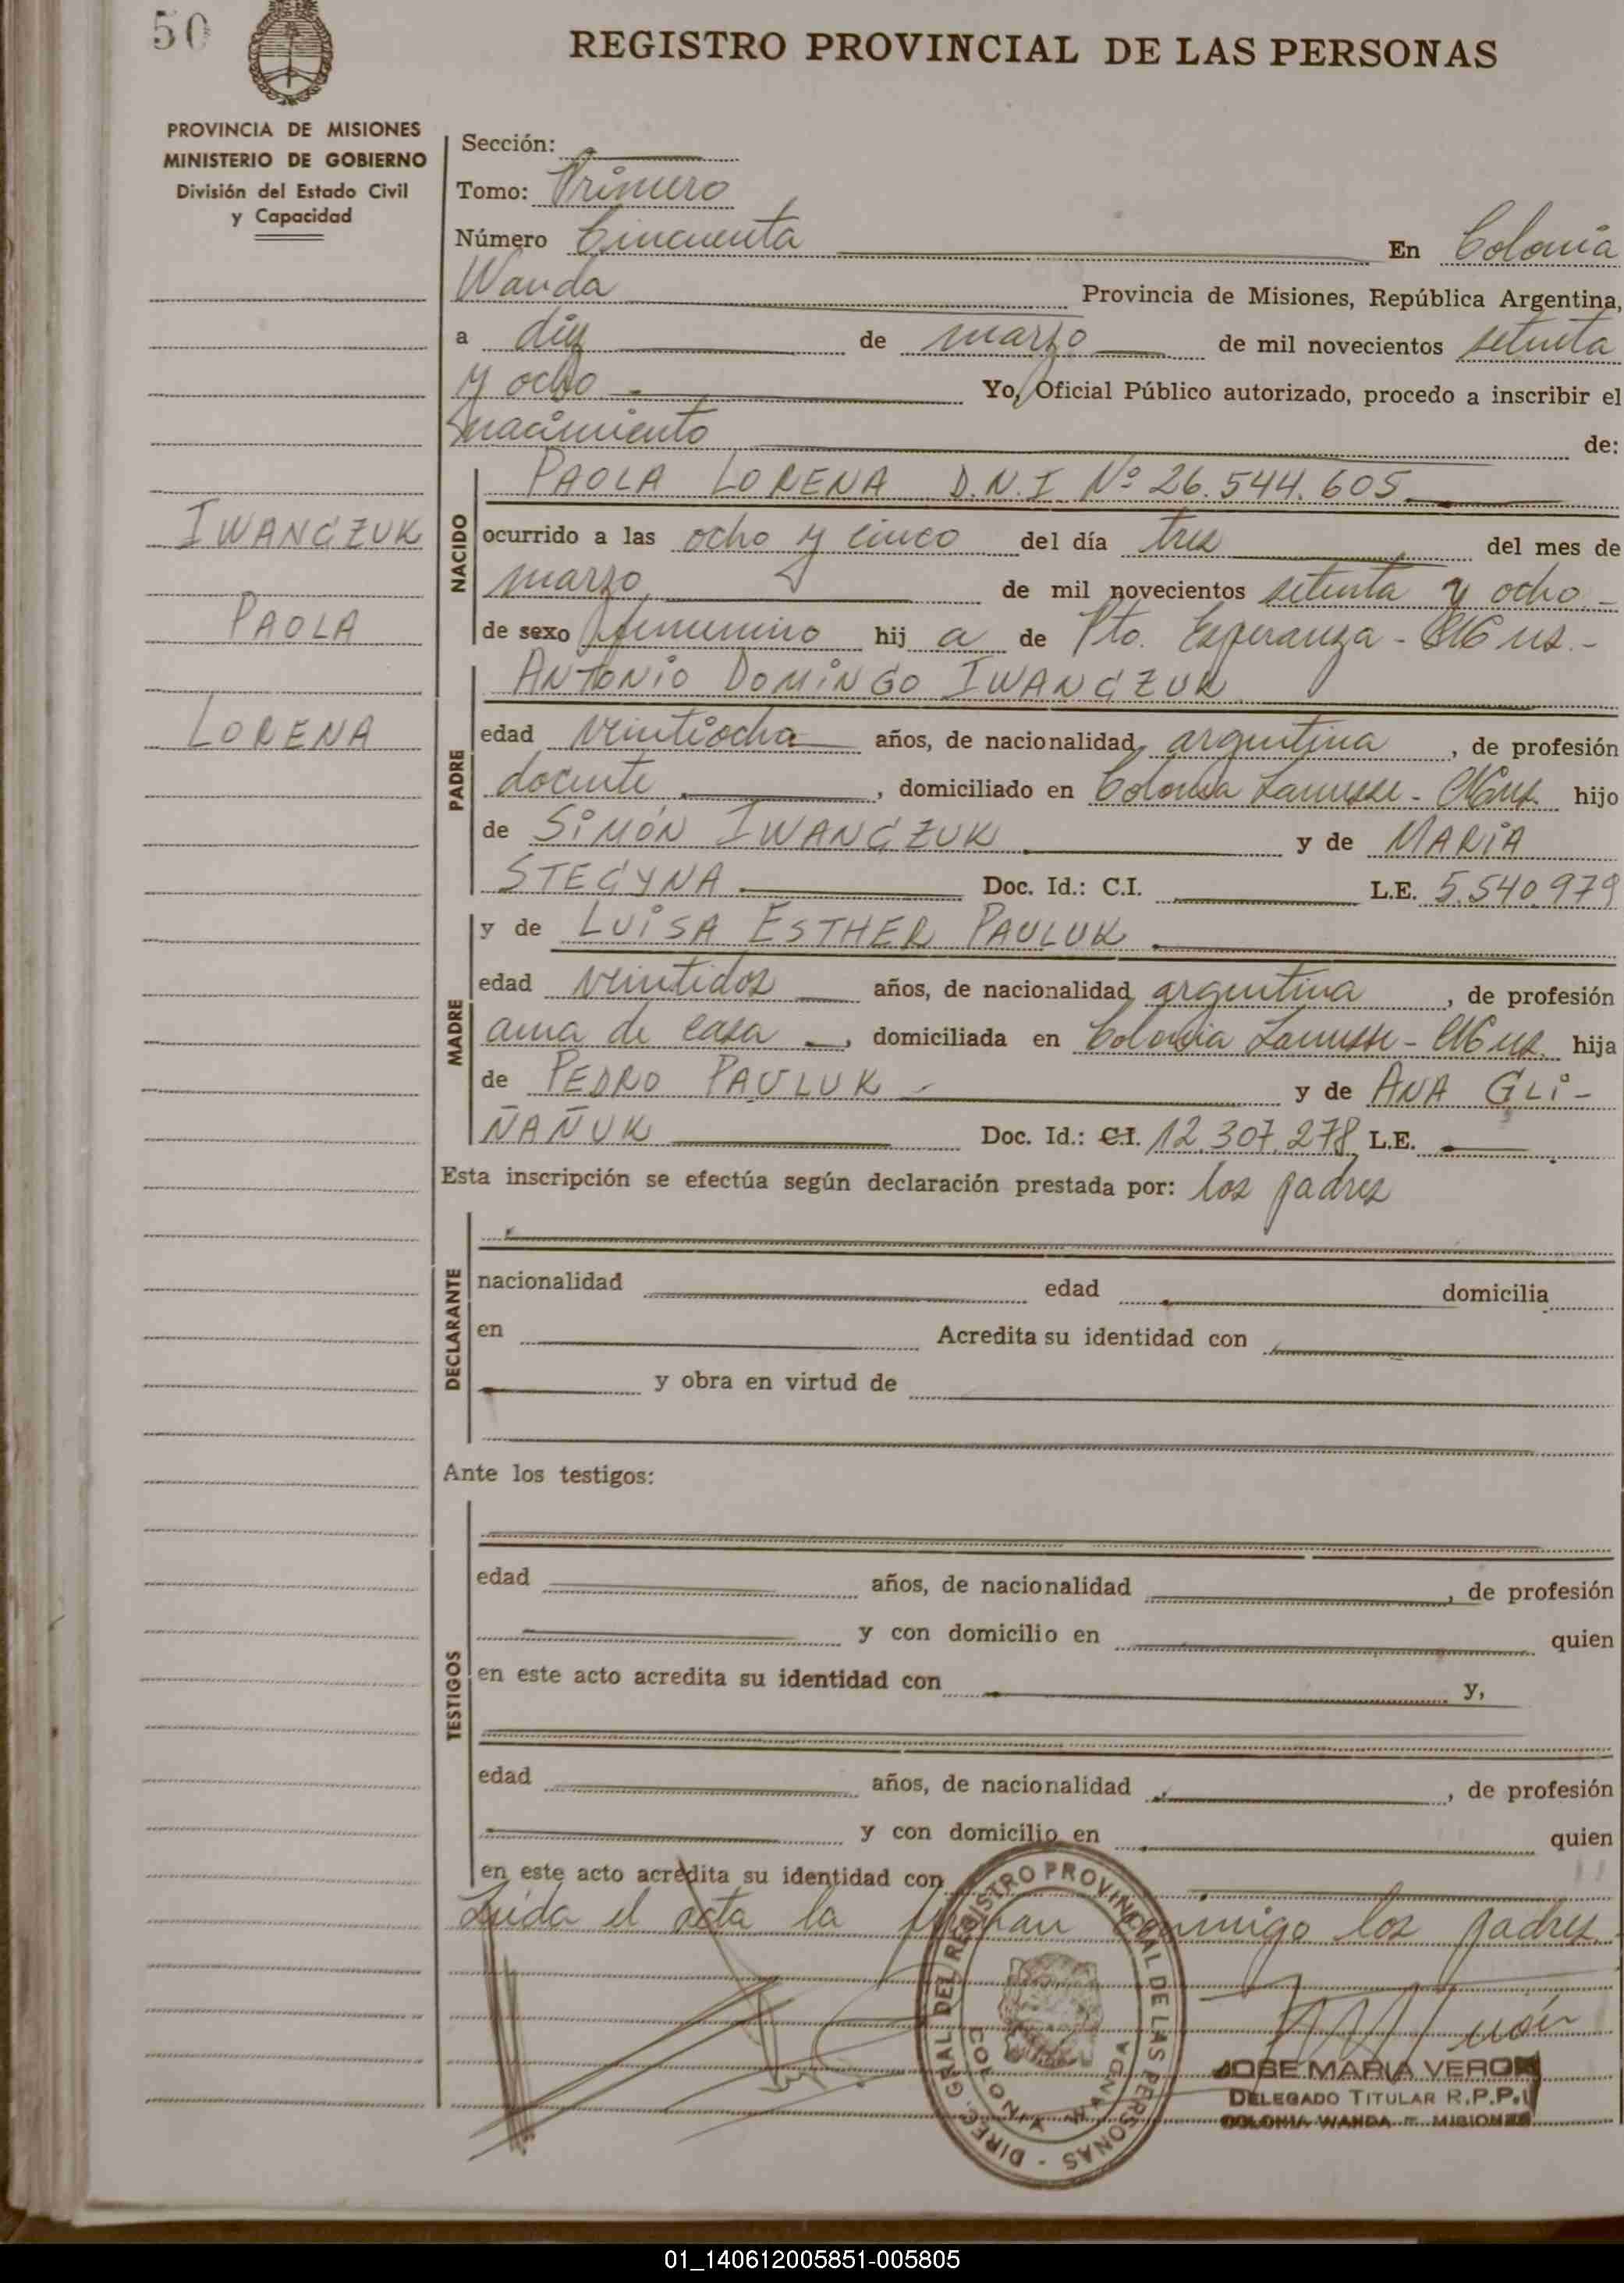 50
REGISTRO PROVINCIAL DE LAS PERSONAS
PROVINCIA DE MISIONES
MINISTERIO DE GOBIERNO
División del Estado Civil
y Capacidad
Sección:
Tomo: Primero
Número Cincuenta En Colonia
Wanda Provincia de Misiones, República Argentina,
a diez de marzo de mil novecientos setenta
y ocho - Yo, Oficial Público autorizado, procedo a inscribir el
nacimiento de:
NACIDO
PAOLA LORENA D.N.I. Nº 26.544.605
IWANCZUK
ocurrido a las ocho y cinco del día tres del mes de
marzo de mil novecientos setenta y ocho -
PAOLA
de sexo femenino hij a de Pto. Esperanza - Mns. -
PADRE
ANTONIO DOMINGO IWANCZUK
LORENA
edad veintiocho años, de nacionalidad argentina, de profesión
docente, domiciliado en Colonia Lanusse - Mns. hijo
de SIMÓN IWANCZUK y de MARIA
STECYNA Doc. Id.: C.I. L.E. 5.540.979
MADRE
y de LUISA ESTHER PAULUK
edad veintidos años, de nacionalidad argentina, de profesión
ama de casa, domiciliada en Colonia Lanusse - Mns. hija
de PEDRO PAULUK - y de ANA GLI-
ÑAÑUK Doc. Id.: C.I. 12.307.278 L.E.
Esta inscripción se efectúa según declaración prestada por: los padres
DECLARANTE
nacionalidad edad domicilia
en Acredita su identidad con
y obra en virtud de
Ante los testigos:
TESTIGOS
edad años, de nacionalidad, de profesión
y con domicilio en quien
en este acto acredita su identidad con y,
edad años, de nacionalidad, de profesión
y con domicilio en quien
en este acto acredita su identidad con
Leída el acta la firman conmigo los padres.
DIREC. GRAL DEL REGISTRO PROVINCIAL DE LAS PERSONAS -
COLONIA WANDA
JOSE MARIA VERON
DELEGADO TITULAR R.P.P.
COLONIA WANDA - MISIONES
01_140612005851-005805